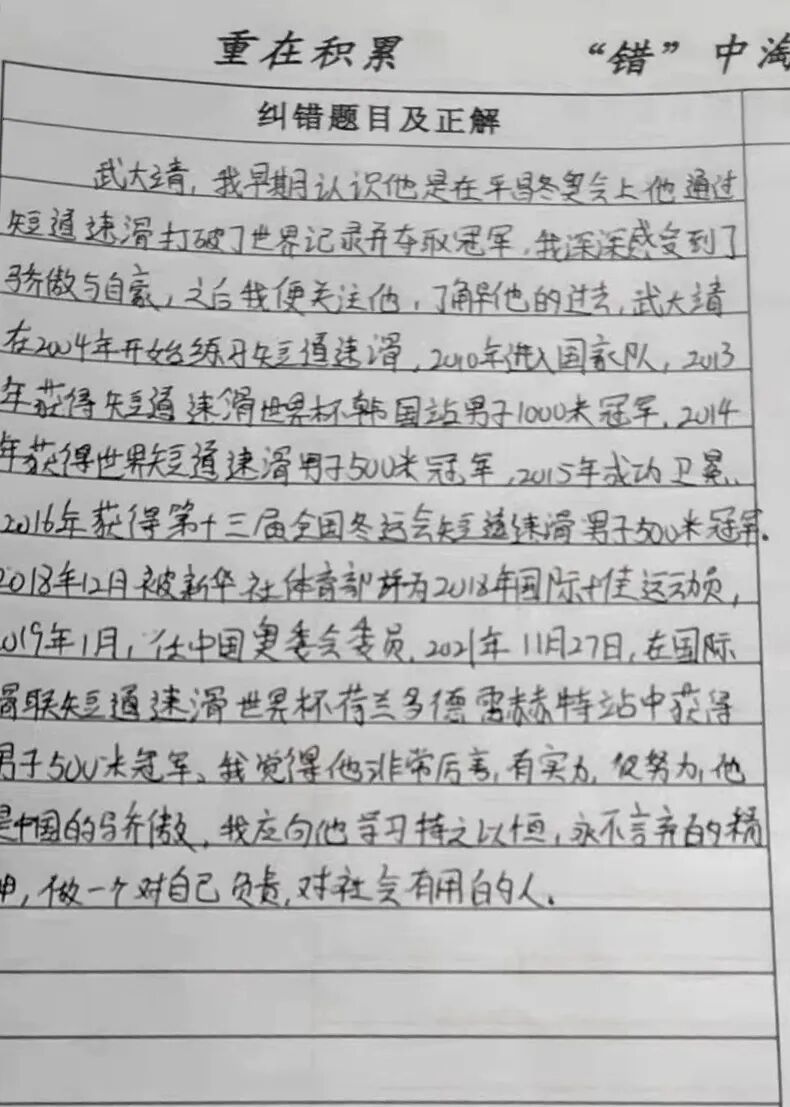 重在积累 “错”中淘
纠错题目及正解
武大靖，我早期认识他是在平昌冬奥会上他通过
短道速滑打破了世界记录并夺取冠军，我深深感受到了
骄傲与自豪，之后我便关注他，了解他的过去，武大靖
在2004年开始练习短道速滑，2010年进入国家队，2013
年获得短道速滑世界杯韩国站男子1000米冠军，2014
年获得世界短道速滑男子500米冠军，2015年成功卫冕，
2016年获得第十三届全国冬运会短道速滑男子500米冠军.
2018年12月被新华社体育部评为2018年国际十佳运动员，
2019年1月，任中国奥委会委员，2021年11月27日，在国际
滑联短道速滑世界杯荷兰多德雷赫特站中获得
男子500米冠军、我觉得他非常厉害，有实力，但努力，他
是中国的骄傲，我应向他学习持之以恒，永不言弃的精
神，做一个对自己负责，对社会有用的人.